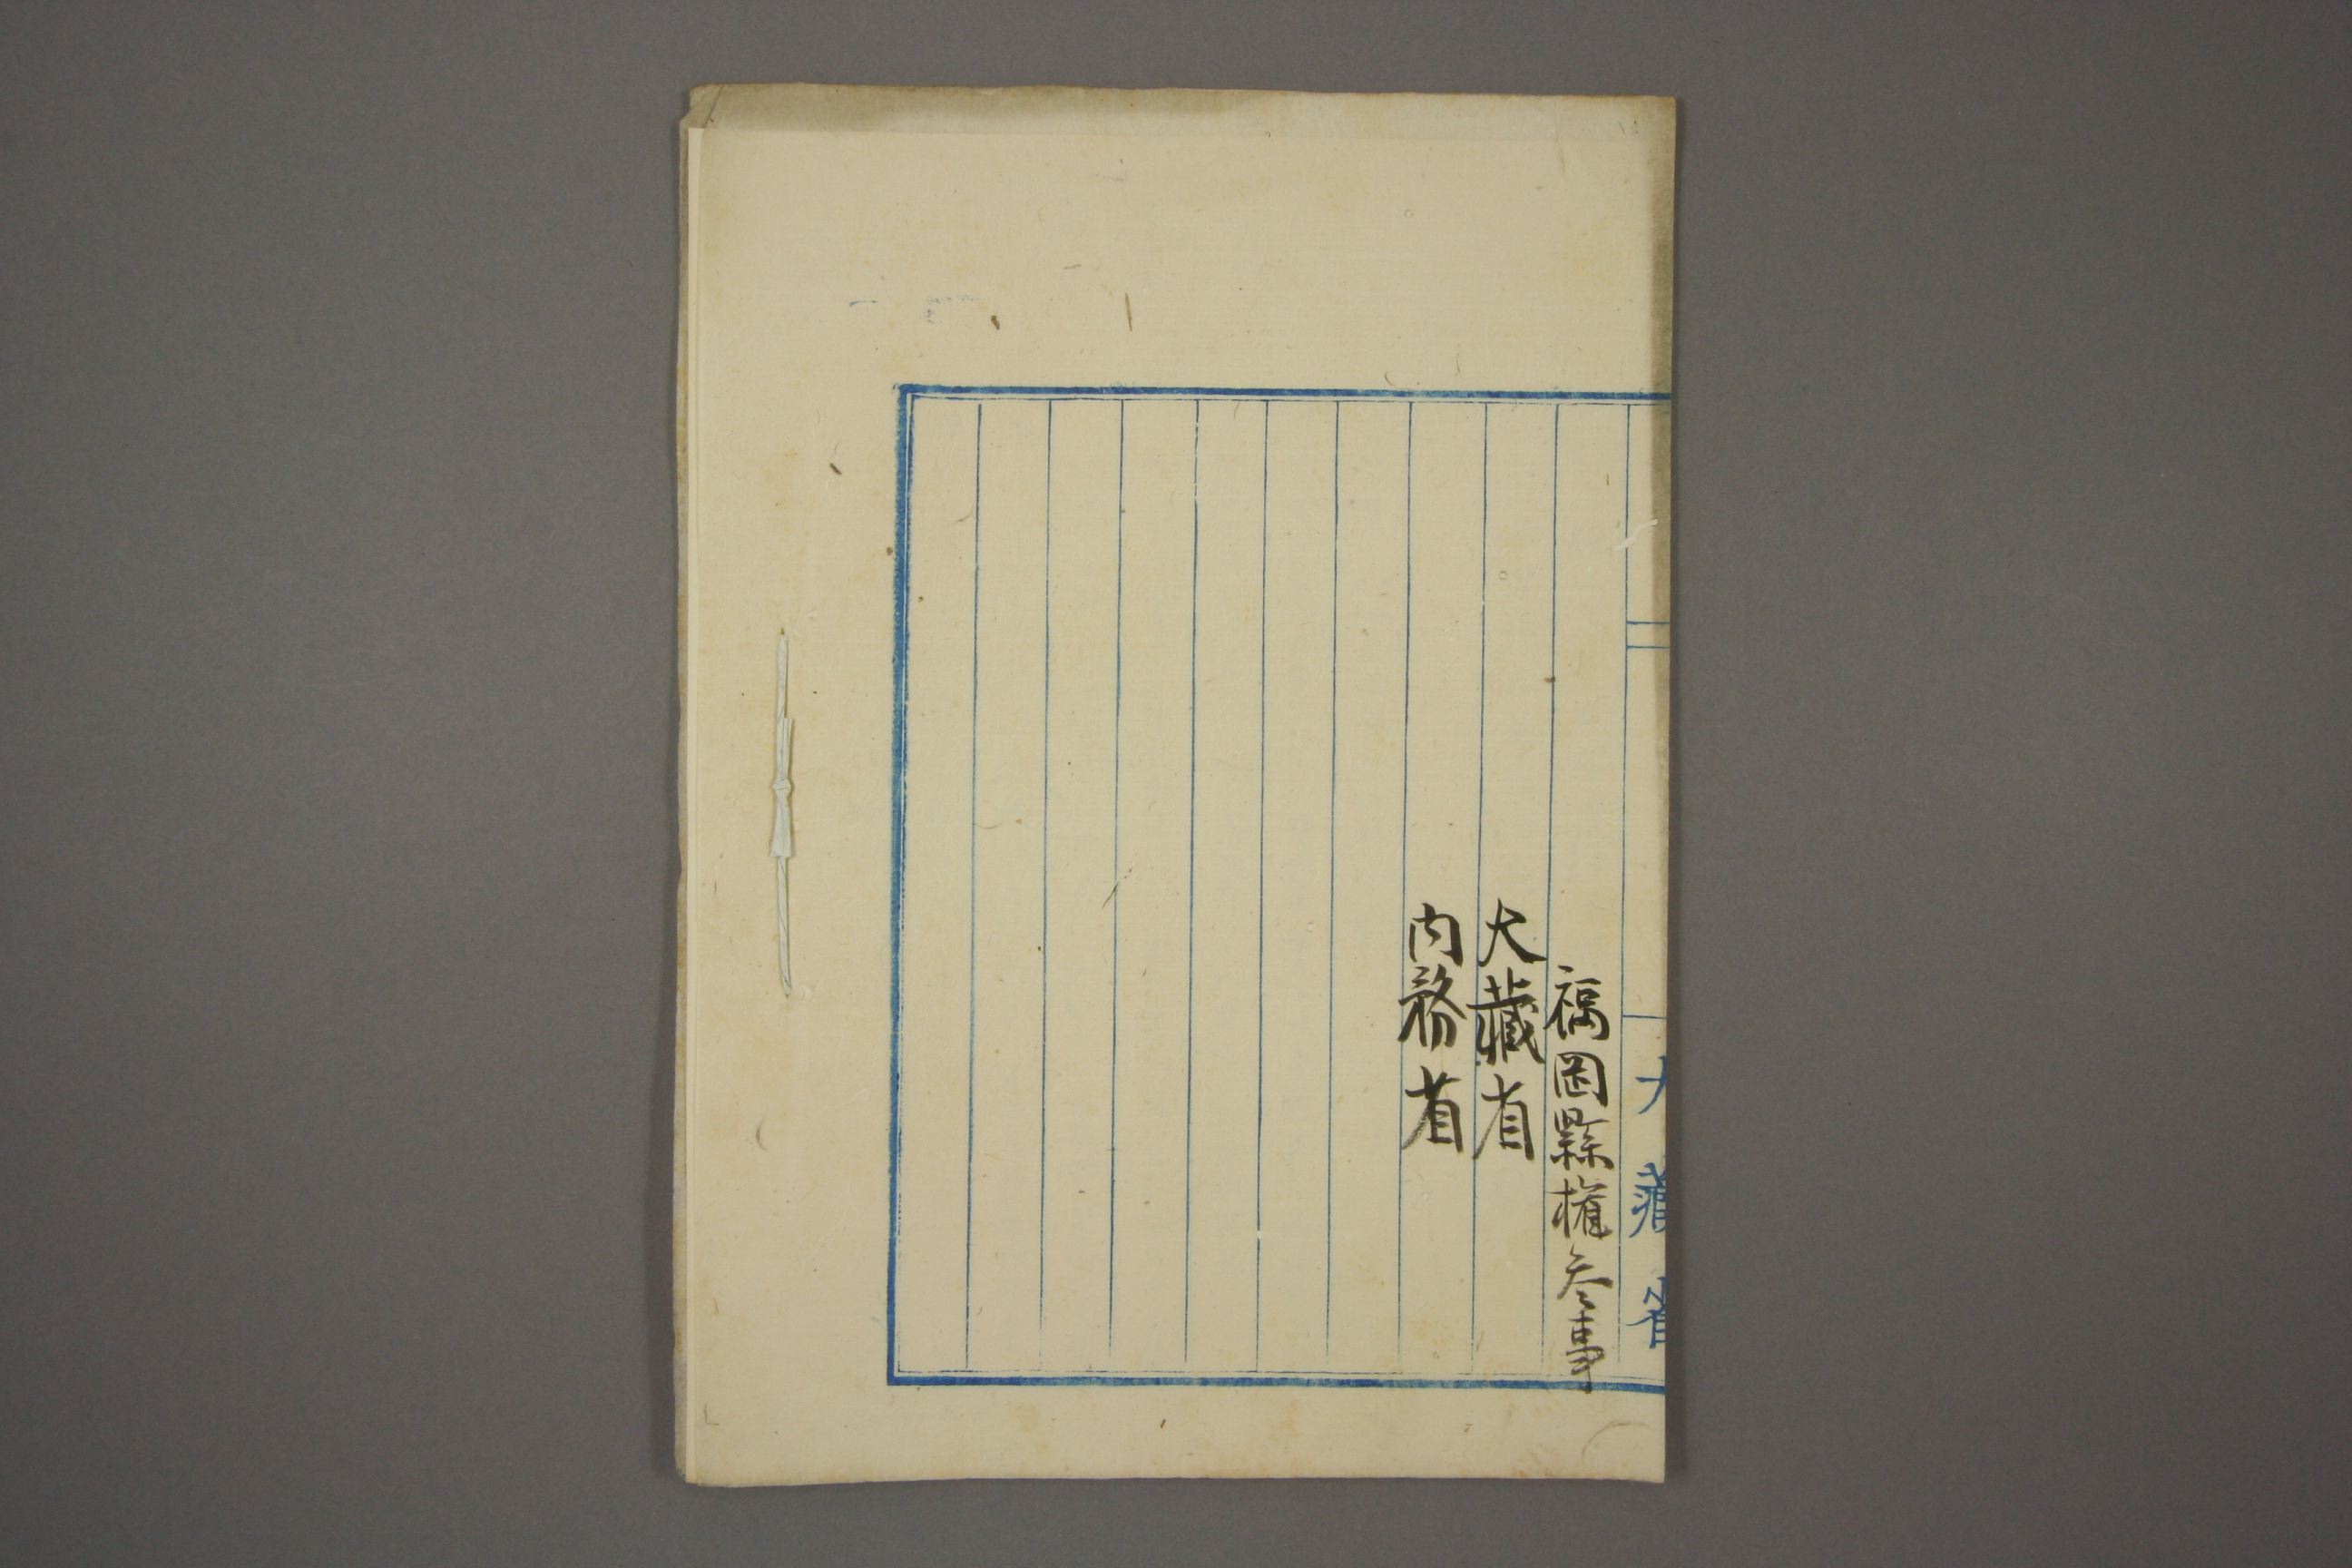 大藏省
福岡縣権参事
大藏省
内務省